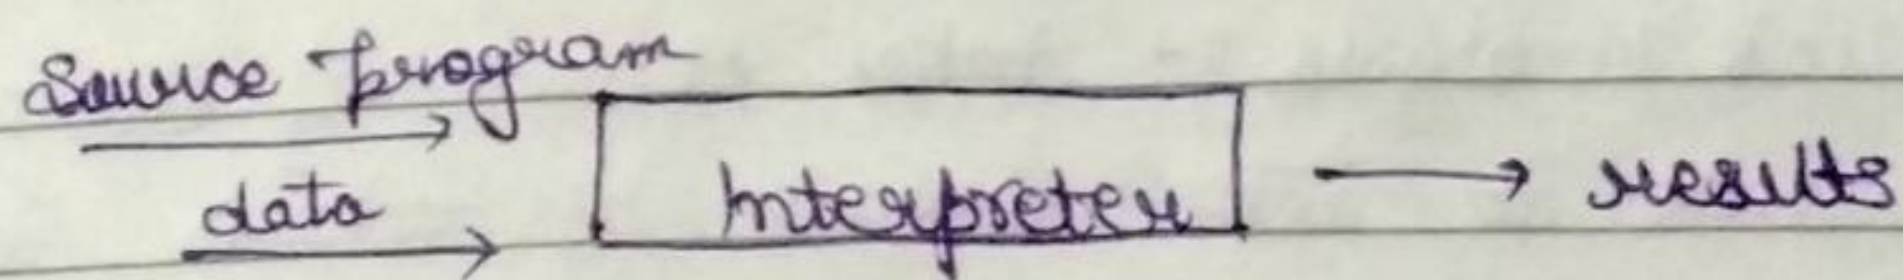 Source program
data
Interpreter
results